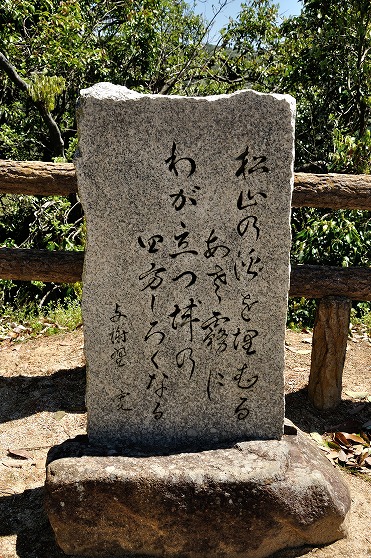 松山の渓を埋むる
あさ霧に
わが立つ城の
四方しろくなる
与謝野 寛